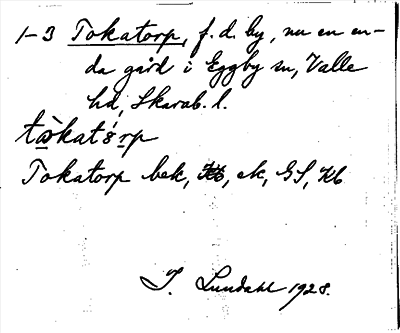 1-3 Tokatorp, f. d. by, nu en en-
da gård i Eggby sn, Valle
hd, Skarab. l.
Tokatorp bek, ek, GS, Kb
I. Lundahl 1928.